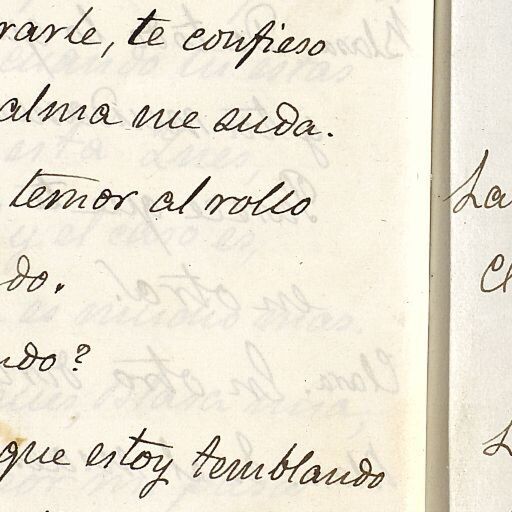 rarle, te confieso
alma me suda.
temor al rollo
do.
ndo?
que estoy temblando
La